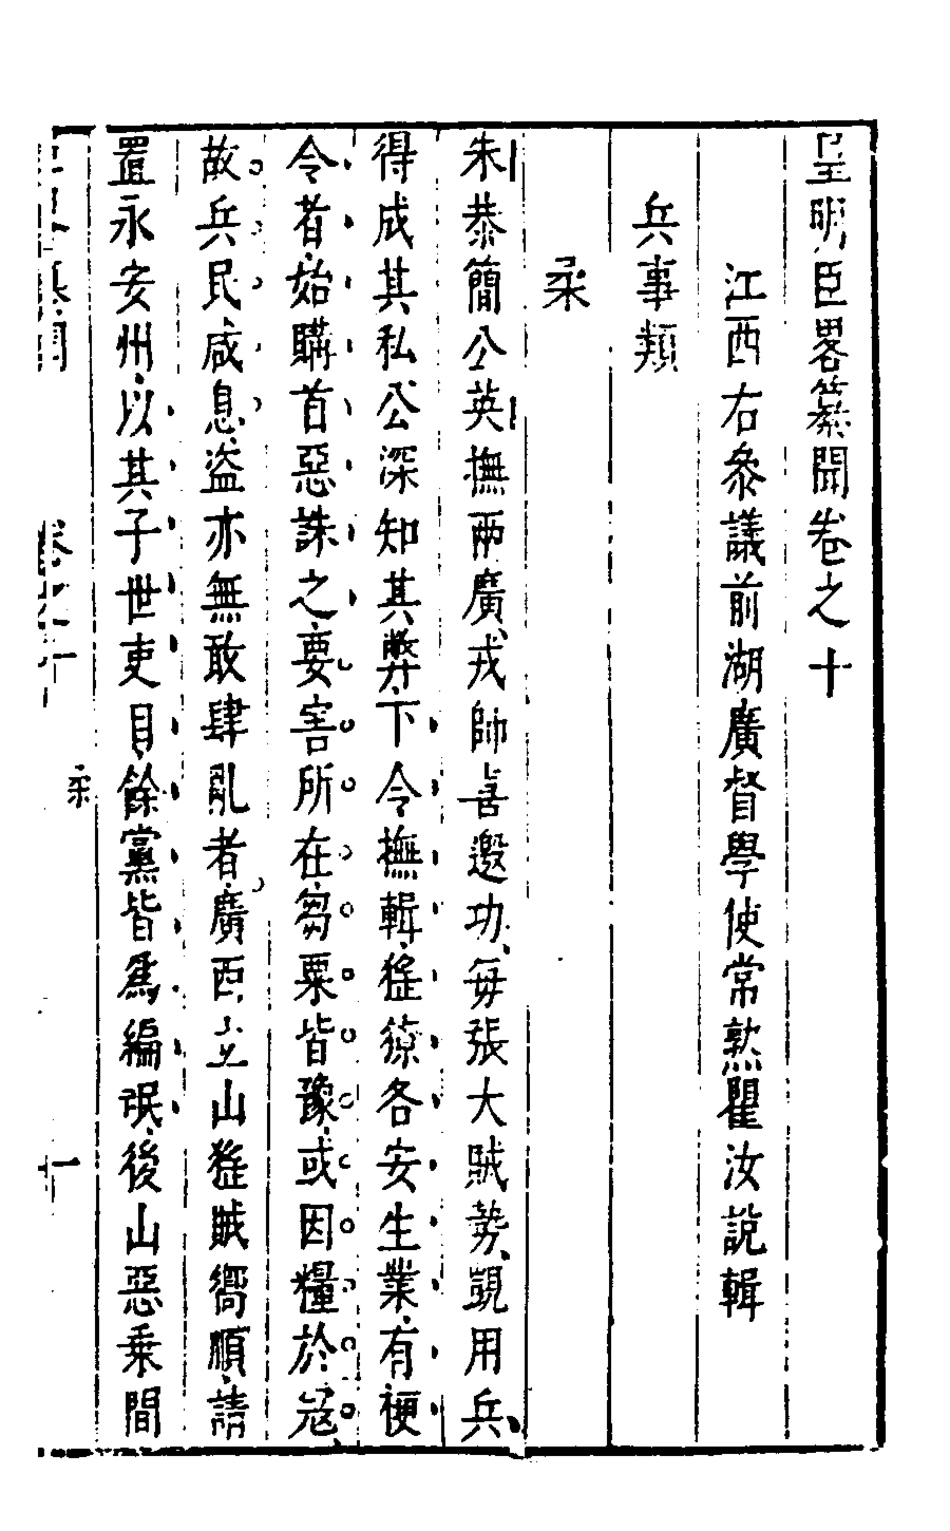 皇明臣畧纂聞卷之十
江西右叅議前湖廣督學使常熟瞿汝說輯
兵事類
朱恭簡公英撫兩廣戎帥喜邀功每張大賊勢覬用兵
得成其私公深知其弊下令撫輯猺獠各安生業有梗
令者始購首惡誅之要害所在芻粟皆豫或因糧於寇
故兵民咸息盜亦無敢肆亂者廣西立山猺賊嚮順請
置永安州以其子世吏目餘黨皆爲編氓後山惡乘間
卷之十
一